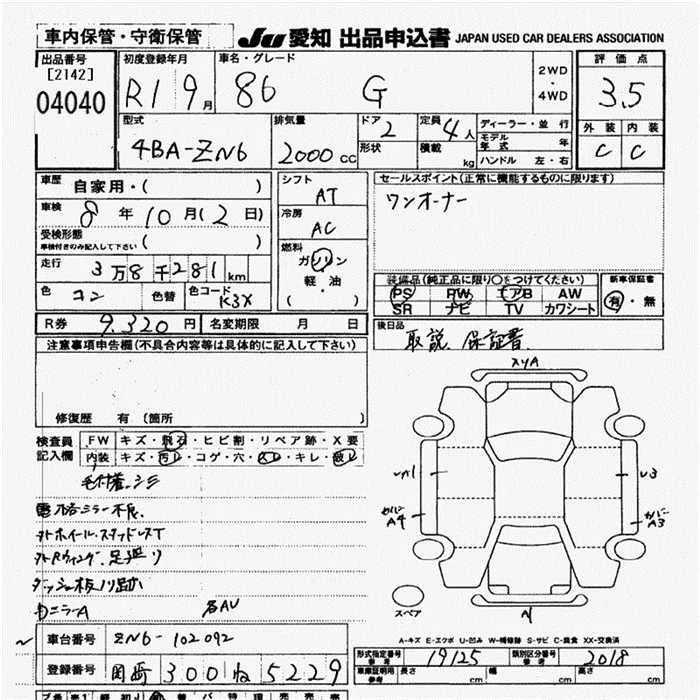 車内保管・守衛保管
JU 愛知 出品申込書 JAPAN USED CAR DEALERS ASSOCIATION
出品番号 初度登録年月 車名・グレード 2WD ・ 4WD 評価点
[2142]
04040 R1 9月 86 G 3.5
型式 排気量 ドア 定員 ディーラー・並行 外装 内装
4BA-ZN6 2000cc 2 4人 モデル年式 年 C C
形状 積載 kg ハンドル 左・右
車歴 自家用・( ) シフト AT セールスポイント(正常に機能するものに限ります)
車検 8年10月(2日) 冷房 AC ワンオーナー
受検形態 ( )
車検付きのみ記入して下さい
燃料 ガソリン
軽・油
( ・ )
走行 3万8千281km
色 コン 色替 色コード K3X
装備品(純正品に限り○をつけてください) 新車保証書
PS PW エアB AW 有・無
SR ナビ TV カワシート
R券 9,320円 名変期限 月 日
後日品 取説、保証書
注意事項申告欄(不具合内容等は具体的に記入して下さい)
修復歴 有 (箇所 )
検査員 記入欄
FW キズ・飛石・ヒビ割・リペア跡・X要
内装 キズ・汚レ・コゲ・穴・スレ・キレ・
スリA
A1
U3
カバーA4
カバーA3
ミラー不良
外ホイール・スタッドレスT
外Rウィング、足廻り
ダッシュ板ノリ跡
カニラーA
各AU
スペア
A
A-キズ E-エクボ U-凹み W-補修跡 S-サビ C-腐食 XX-交換済
車台番号 ZN6-102092
形式指定番号 参考 19125 類別区分番号 参考 2018
登録番号 岡崎 300 ね 5229
車庫証明用 参考 長さ cm 幅 cm 高さ cm